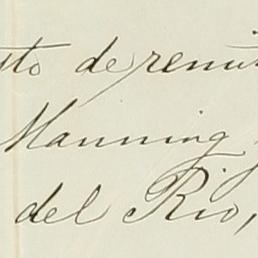 sto de remi
Manning y
del Rio,